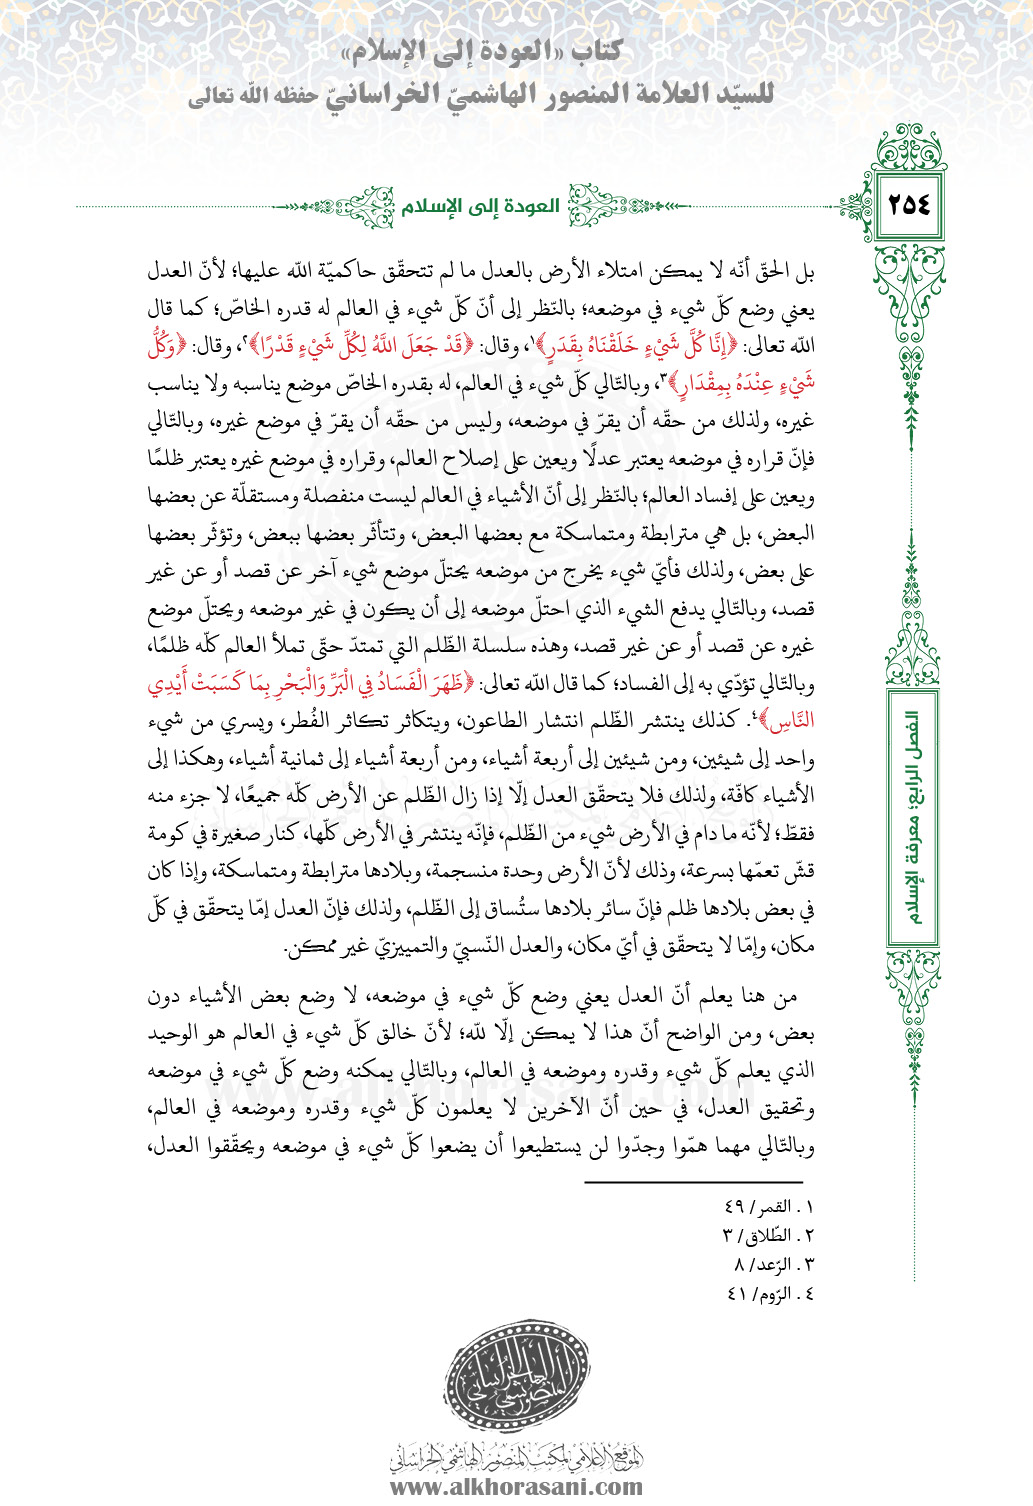 كتاب «العودة إلى الإسلام»
للسيّد العلامة المنصور الهاشميّ الخراسانيّ حفظه الله تعالى
٢٥٤
العودة إلى الإسلام
بل الحقّ أنّه لا يمكن امتلاء الأرض بالعدل ما لم تتحقّق حاكميّة الله عليها؛ لأنّ العدل
يعني وضع كلّ شيء في موضعه؛ بالنّظر إلى أنّ كلّ شيء في العالم له قدره الخاصّ؛ كما قال
الله تعالى: ﴿إِنَّا كُلَّ شَيْءٍ خَلَقْنَاهُ بِقَدَرٍ﴾١، وقال: ﴿قَدْ جَعَلَ اللَّهُ لِكُلِّ شَيْءٍ قَدْرًا﴾٢، وقال: ﴿وَكُلُّ
شَيْءٍ عِنْدَهُ بِمِقْدَارٍ﴾٣، وبالتّالي كلّ شيء في العالم، له بقدره الخاصّ موضع يناسبه ولا يناسب
غيره، ولذلك من حقّه أن يقرّ في موضعه، وليس من حقّه أن يقرّ في موضع غيره، وبالتّالي
فإنّ قراره في موضعه يعتبر عدلًا ويعين على إصلاح العالم، وقراره في موضع غيره يعتبر ظلمًا
ويعين على إفساد العالم؛ بالنّظر إلى أنّ الأشياء في العالم ليست منفصلة ومستقلّة عن بعضها
البعض، بل هي مترابطة ومتماسكة مع بعضها البعض، وتتأثّر بعضها ببعض، وتؤثّر بعضها
على بعض، ولذلك فأيّ شيء يخرج من موضعه يحتلّ موضع شيء آخر عن قصد أو عن غير
قصد، وبالتّالي يدفع الشيء الذي احتلّ موضعه إلى أن يكون في غير موضعه ويحتلّ موضع
غيره عن قصد أو عن غير قصد، وهذه سلسلة الظّلم التي تمتدّ حتّى تملأ العالم كلّه ظلمًا،
وبالتّالي تؤدّي به إلى الفساد؛ كما قال الله تعالى: ﴿ظَهَرَ الْفَسَادُ فِي الْبَرِّ وَالْبَحْرِ بِمَا كَسَبَتْ أَيْدِي
النَّاسِ﴾٤. كذلك ينتشر الظّلم انتشار الطاعون، ويتكاثر تكاثر الفُطر، ويسري من شيء
واحد إلى شيئين، ومن شيئين إلى أربعة أشياء، ومن أربعة أشياء إلى ثمانية أشياء، وهكذا إلى
الأشياء كافّة، ولذلك فلا يتحقّق العدل إلّا إذا زال الظّلم عن الأرض كلّه جميعًا، لا جزء منه
فقطّ؛ لأنّه ما دام في الأرض شيء من الظّلم، فإنّه ينتشر في الأرض كلّها، كنار صغيرة في كومة
قشّ تعمّها بسرعة، وذلك لأنّ الأرض وحدة منسجمة، وبلادها مترابطة ومتماسكة، وإذا كان
في بعض بلادها ظلم فإنّ سائر بلادها ستُساق إلى الظّلم، ولذلك فإنّ العدل إمّا يتحقّق في كلّ
مكان، وإمّا لا يتحقّق في أيّ مكان، والعدل النّسبيّ والتمييزيّ غير ممكن.
من هنا يعلم أنّ العدل يعني وضع كلّ شيء في موضعه، لا وضع بعض الأشياء دون
بعض، ومن الواضح أنّ هذا لا يمكن إلّا لله؛ لأنّ خالق كلّ شيء في العالم هو الوحيد
الذي يعلم كلّ شيء وقدره وموضعه في العالم، وبالتّالي يمكنه وضع كلّ شيء في موضعه
وتحقيق العدل، في حين أنّ الآخرين لا يعلمون كلّ شيء وقدره وموضعه في العالم،
وبالتّالي مهما همّوا وجدّوا لن يستطيعوا أن يضعوا كلّ شيء في موضعه ويحقّقوا العدل،
الفصل الرابع؛ معرفة الإسلام
١ . القمر/ ٤٩
٢ . الطّلاق/ ٣
٣ . الرّعد/ ٨
٤ . الرّوم/ ٤١
الموقع الإعلامي لمكتب المنصور الهاشمي الخراساني
www.alkhorasani.com